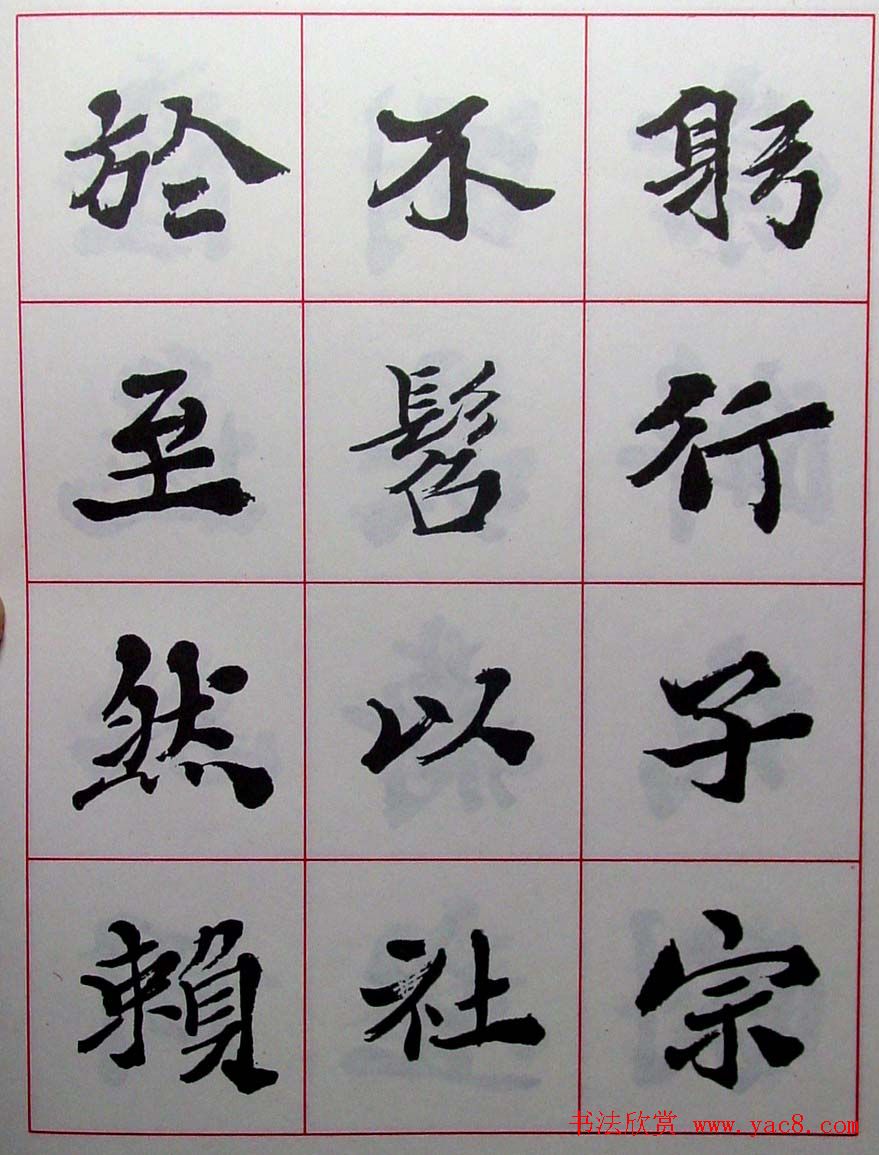 躬行子宗
不髫以社
於至然賴
书法欣赏 www.yac8.com